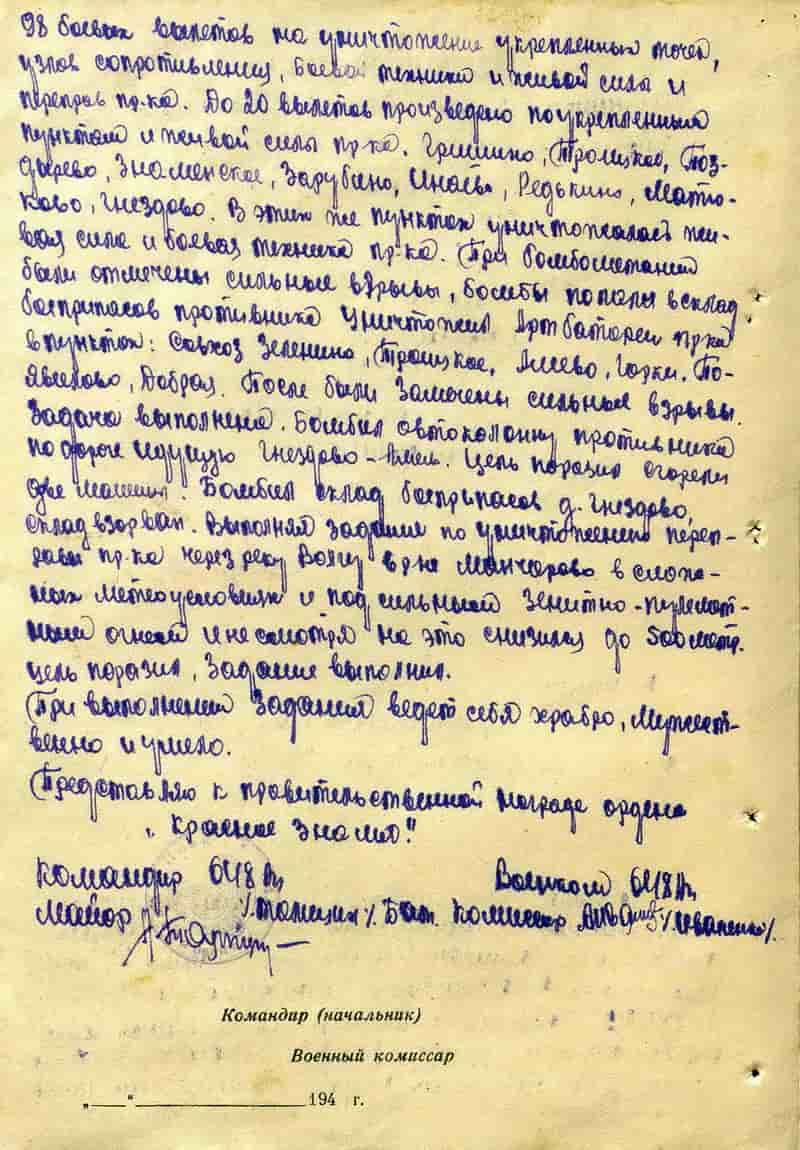 98 боевых вылетов на уничтожение укрепленных точек,
узлов сопротивления, боевой техники и живой силы и
переправ пр-ка. До 20 вылетов произведено по укрепленным
пунктам и живой силы пр-ка. Гришино, Троицкое, Поз-
дырево, Знаменское, Зарубино, Редькино, Матю-
ково, Гнездово. В этих же пунктах уничтожалась жи-
вая сила и боевая техника пр-ка. При бомбометаний
были отмечены сильные взрывы, бомбы попали в склад
боеприпасов противника Уничтожил Артбатареи пр-ка
в пунктах: Совхоз Зеленино, Троицкое, Горки, По-
Доброя. После были замечены сильные взрывы.
Задача выполнена. Бомбил автоколонну противника
по дороге идущую Гнездово - Цель поразил сгорели
две машины. Бомбил склад боеприпасов д. Гнездово,
склад взорван. Выполняя задание по уничтожению переп-
равы пр-ка через реку Волгу в р-не Манчарово в слож-
ных метеоусловиях и под сильным зенитно-пулемет-
ным огнем и не смотря на это снизился до 500 метр.
цель поразил, задание выполнил.
При выполнении задания ведет себя храбро, мужест-
венно и умело.
Представляю к правительственной награде ордена
„Красное знамя"
Командир 648 Военком 648
майор Бат. Комиссар /Иваненко/.
Командир (начальник)
Военный комиссар
„___“ ______________ 194 г.